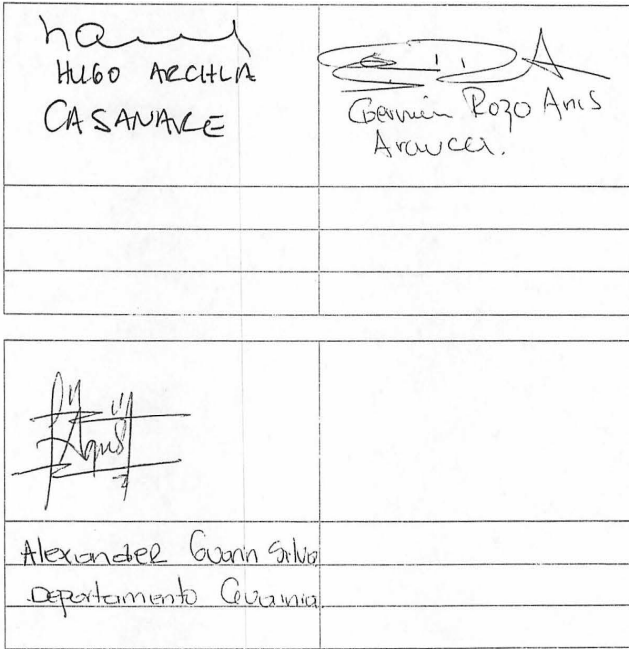 HUGO ARCHILA
CASANARE
Germán Rozo Anis
Arauca.
Alexander Guarin Silva
Departamento Guainia